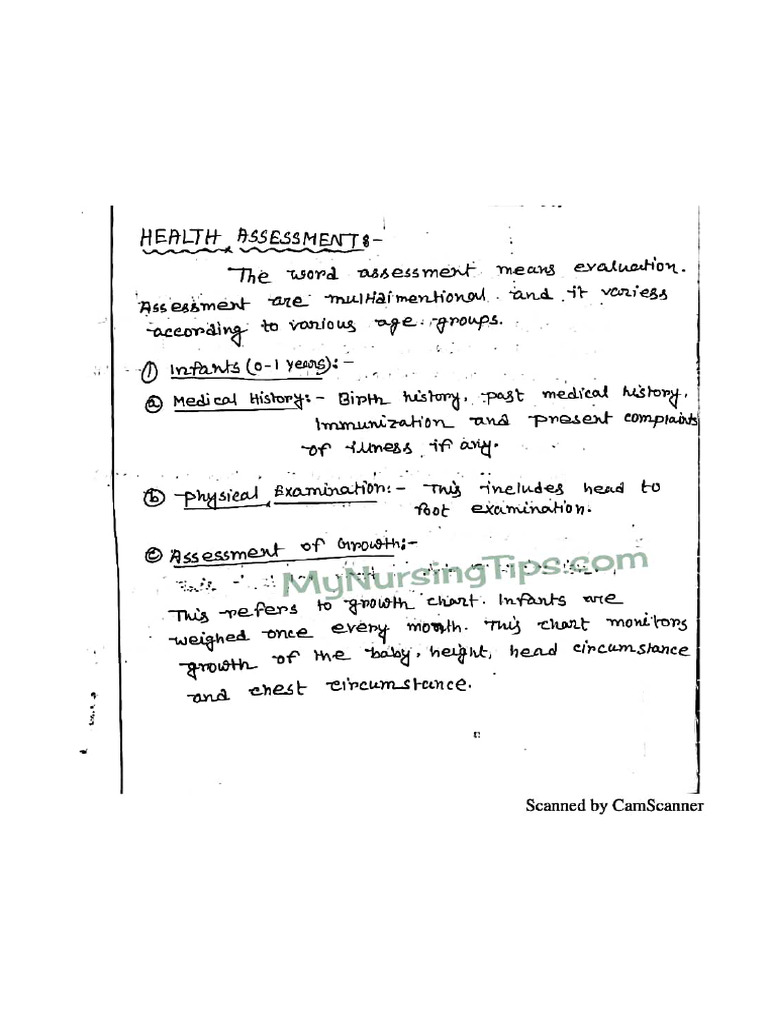 HEALTH ASSESSMENT:-
The word assessment means evaluation.
Assessment are multidimentional and it variess
according to various age groups.
① Infants (0-1 years):-
ⓐ Medical History:- Birth history, past medical history,
Immunization and present complaints
of illness if any.
ⓑ physical Examination:- This includes head to
foot examination.
ⓒ Assessment of Growth:-
MyNursingTips.com
This refers to growth chart. Infants are
weighed once every month. This chart monitors
growth of the baby, height, head circumstance
and chest circumstance.
Scanned by CamScanner